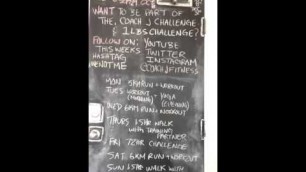 WANT TO BE PART OF
THE, COACH J CHALLENGE
& ILBS CHALLENGE?
FOLLOW ON: YOUTUBE
THIS WEEKS TWITTER
HASHTAG INSTAGRAM
COACHJFITNESS
MON 5KMRUN + WORKOUT
TUES WORKOUT YOGA
(EVENING)
WED 6KM RUN + WORKOUT
THURS WALK
WITH TRAINING
PARTNER
FRI CHALLENGE
SAT 6KM RUN + WORKOUT
SUN WALK WITH